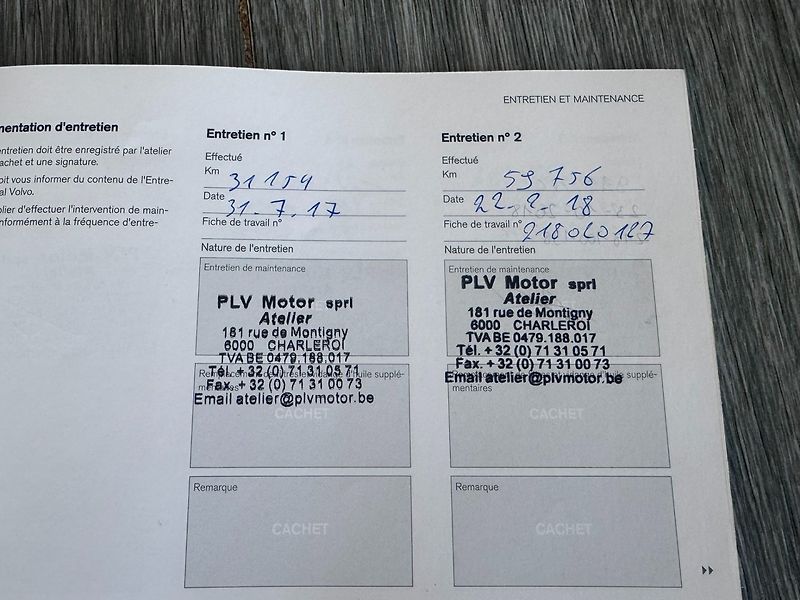 ENTRETIEN ET MAINTENANCE
mentation d'entretien
entretien doit être enregistré par l'atelier
cachet et une signature.
oit vous informer du contenu de l'Entre-
al Volvo.
plier d'effectuer l'intervention de main-
nformément à la fréquence d'entre-
Entretien n° 1
Effectué
Km 31 154
Date 31.7.17
Fiche de travail n°
Nature de l'entretien
Entretien de maintenance
PLV Motor sprl
Atelier
181 rue de Montigny
6000 CHARLEROI
TVA BE 0479.188.017
Tél. + 32 (0) 71 31 05 71
Fax. + 32 (0) 71 31 00 73
Email atelier@plvmotor.be
d'huile supplé-
mentaires
CACHET
Remarque
CACHET
Entretien n° 2
Effectué
Km 59 756
Date 22-2-18
Fiche de travail n° 218020127
Nature de l'entretien
Entretien de maintenance
PLV Motor sprl
Atelier
181 rue de Montigny
6000 CHARLEROI
TVA BE 0479.188.017
Tél. + 32 (0) 71 31 05 71
Fax. + 32 (0) 71 31 00 73
Email atelier@plvmotor.be
d'huile supplé-
mentaires
CACHET
Remarque
CACHET